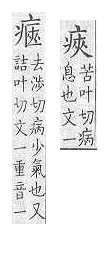 㾜
苦叶切病
息也文一
去涉切病少氣也又
詰叶切文一重音一